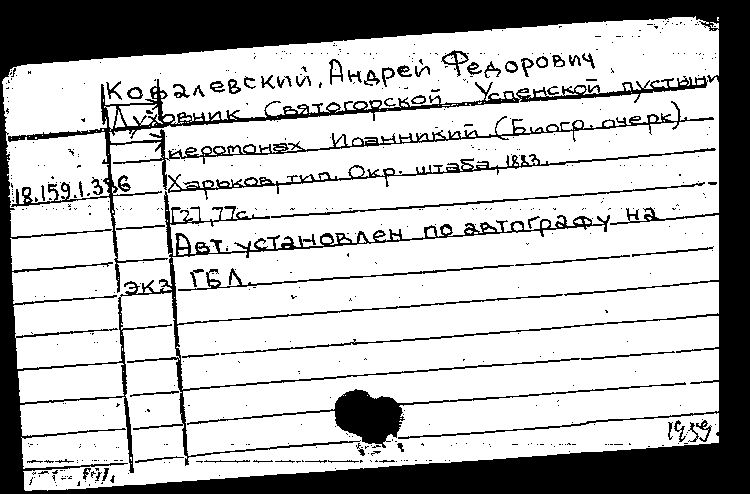 Ковалевский, Андрей Федорович
Духовник Святогорской Успенской пустыни
иеромонах Иоанникий (Биогр. очерк).
18.159.1.386 Харьков, тип. Окр. штаба, 1883.
[2], 77с.
Авт. установлен по автографу на
экз ГБЛ.
1959.